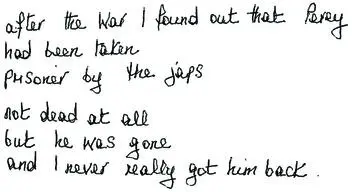 after the war I found out that Percy
had been taken
prisoner by the japs
not dead at all
but he was gone
and I never really got him back.